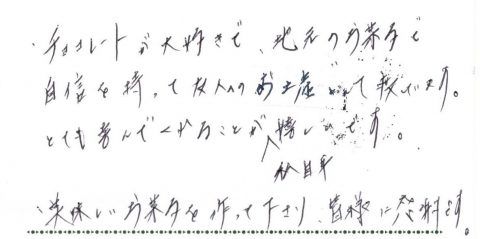 ・チョコレートが大好きで、地元のお菓子で
自信を持って友人へのお土産にして配ってます。
とても喜んでくれることが嬉しいです。
私自身
・美味しいお菓子を作って下さり、皆様に感謝です。